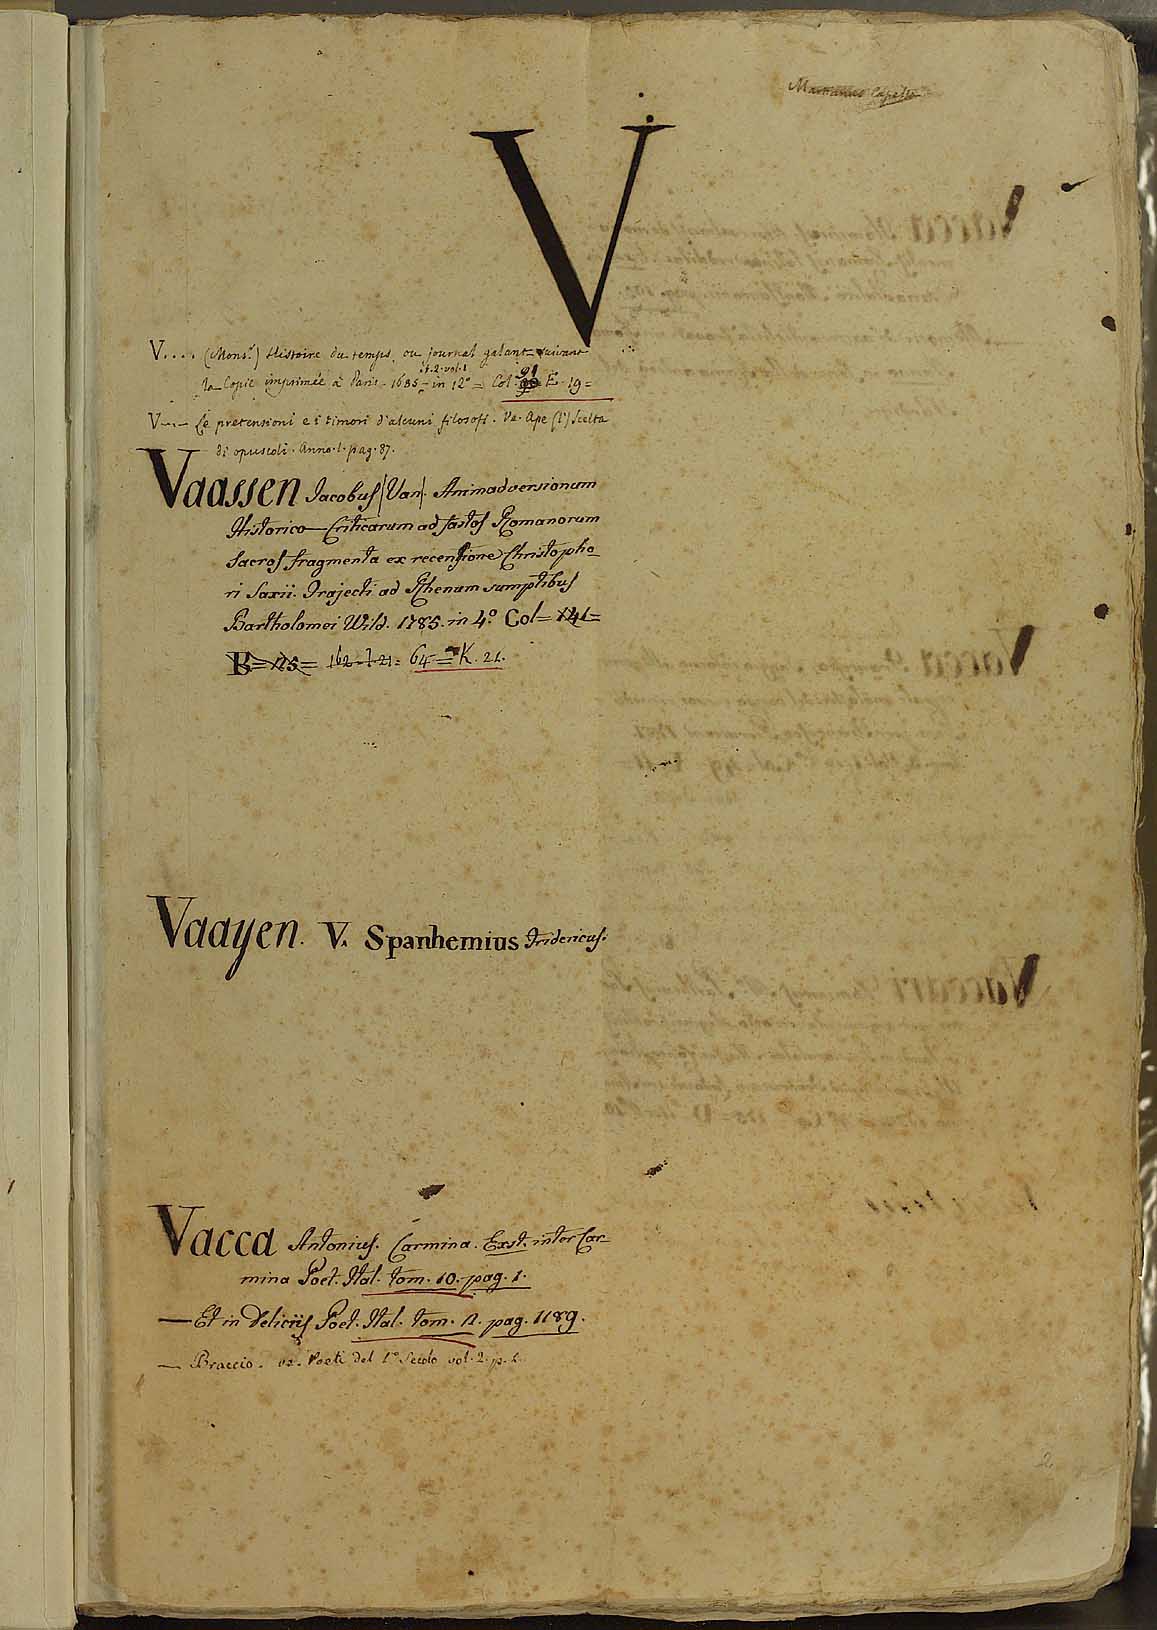 Martianus Capella
V
V.... (Mons.r) Histoire du temps, ou journal galant suivant
la Copie imprimée à Paris - 1685 - in 12° = Col. 91 E. 19 =
t. 2. vol. 1
V--- Le pretensioni e i timori d'alcuni filosofi. Ve. Ape (l') Scelta
di opuscoli. Anno. 1. pag. 87.
Vaassen Jacobus (Van). Animadversionum
Historico-Criticarum ad fastos Romanorum
Sacros fragmenta ex recensione Christopho-
ri Saxii. Trajecti ad Rhenum sumptibus
Bartholomei Wild. 1785. in 4.° Col = 141 =
B = 125 = 162 - 7 - 21 = 64 = K. 21.
Vaayen. V. Spanhemius Fridericus.
Vacca Antonius. Carmina. Exst. inter Car-
mina Poet. Ital. tom. 10. pag. 1.
— Et in Deliciis Poet. Ital. tom. 2. pag. 1189.
— Braccio. ve. Poeti del 1° Secolo vol. 2. p.
2